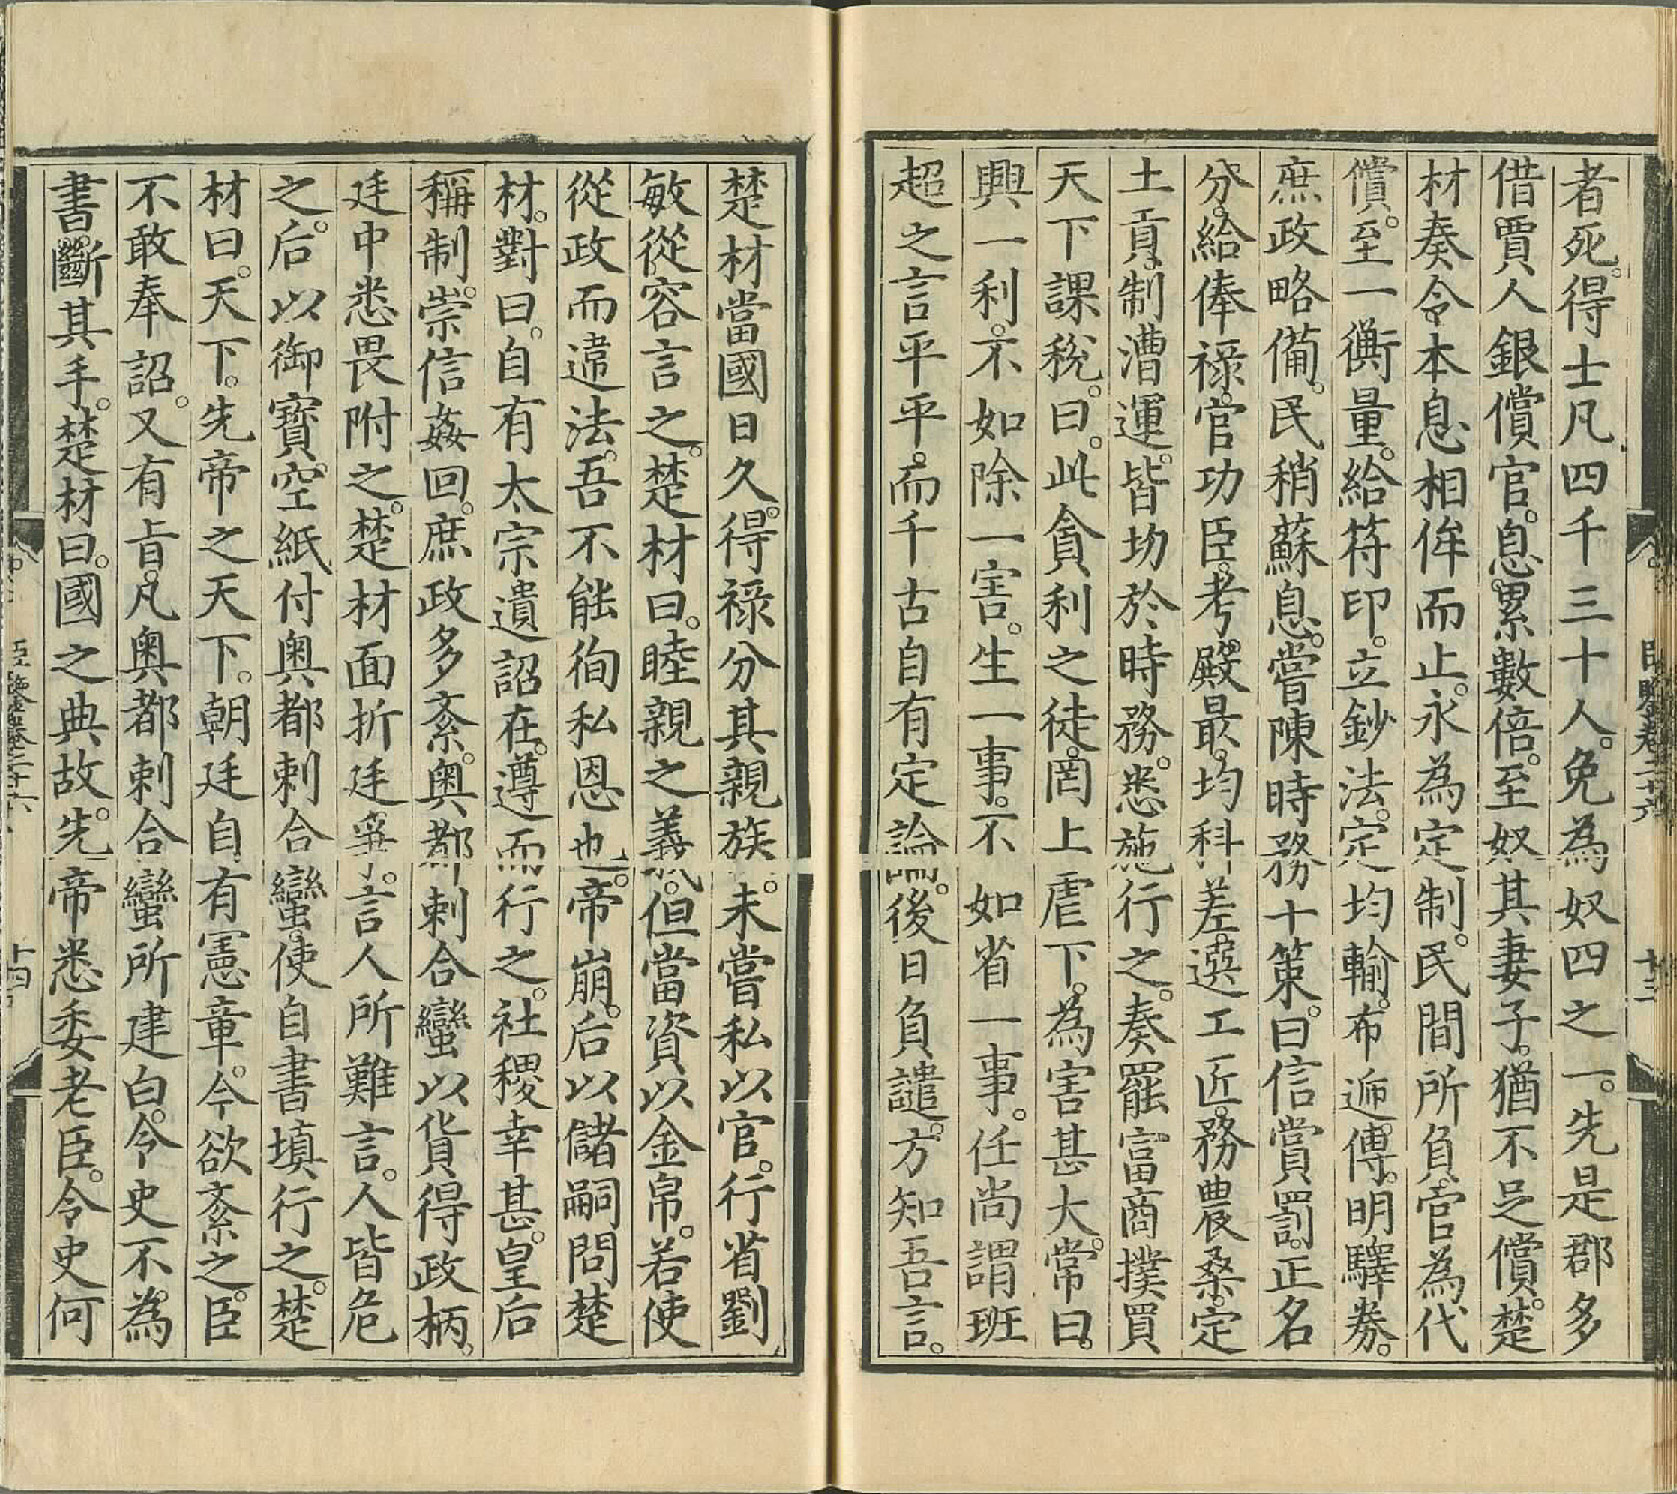 者死。得士凡四千三十人。免為奴四之一。先是郡多
借賈人銀償官。息累數倍。至奴其妻子。猶不足償。楚
材奏令本息相侔而止。永為定制。民間所負。官為代
償。至一衡量。給符印。立鈔法。定均輸。布遞傳。明驛券。
庶政略備。民稍蘇息。嘗陳時務十策。曰信賞罰。正名
分。給俸祿。官功臣。考殿最。均科差。選工匠。務農桑。定
土貢。制漕運。皆切於時務。悉施行之。奏罷富商撲買
天下課稅。曰。此貪利之徒。罔上虐下。為害甚大。常曰。
興一利。不如除一害。生一事。不如省一事。任尚謂班
超之言平平。而千古自有定論。後日負譴。方知吾言。
臣鑒卷二十六
十三
楚材當國日久。得祿分其親族。未嘗私以官。行省劉
敏從容言之。楚材曰。睦親之義。但當資以金帛。若使
從政而違法。吾不能徇私恩也。帝崩。后以儲嗣問楚
材。對曰。自有太宗遺詔在。遵而行之。社稷幸甚。皇后
稱制。崇信姦回。庶政多紊。奧都剌合蠻以貨得政柄。
廷中悉畏附之。楚材面折廷爭。言人所難言。人皆危
之。后以御寶空紙付奧都剌合蠻。使自書填行之。楚
材曰。天下。先帝之天下。朝廷自有憲章。今欲紊之。臣
不敢奉詔。又有旨。凡奧都剌合蠻所建白。令史不為
書。斷其手。楚材曰。國之典故。先帝悉委老臣。令史何
臣鑒卷二十六
十四